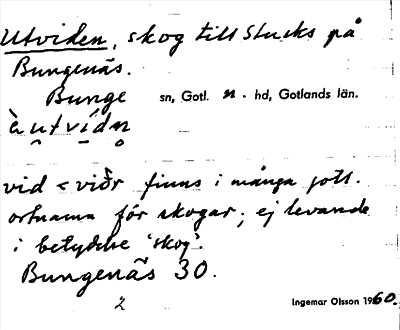 Utviden, skog till Stucks på
Bungenäs.
Bunge sn, Gotl. n. hd, Gotlands län.
utvidn
vid < viðr finns i många gotl.
ortnamn för skogar; ej levande
i betydelse 'skog'.
Bungenäs 30.
2
Ingemar Olsson 1960.